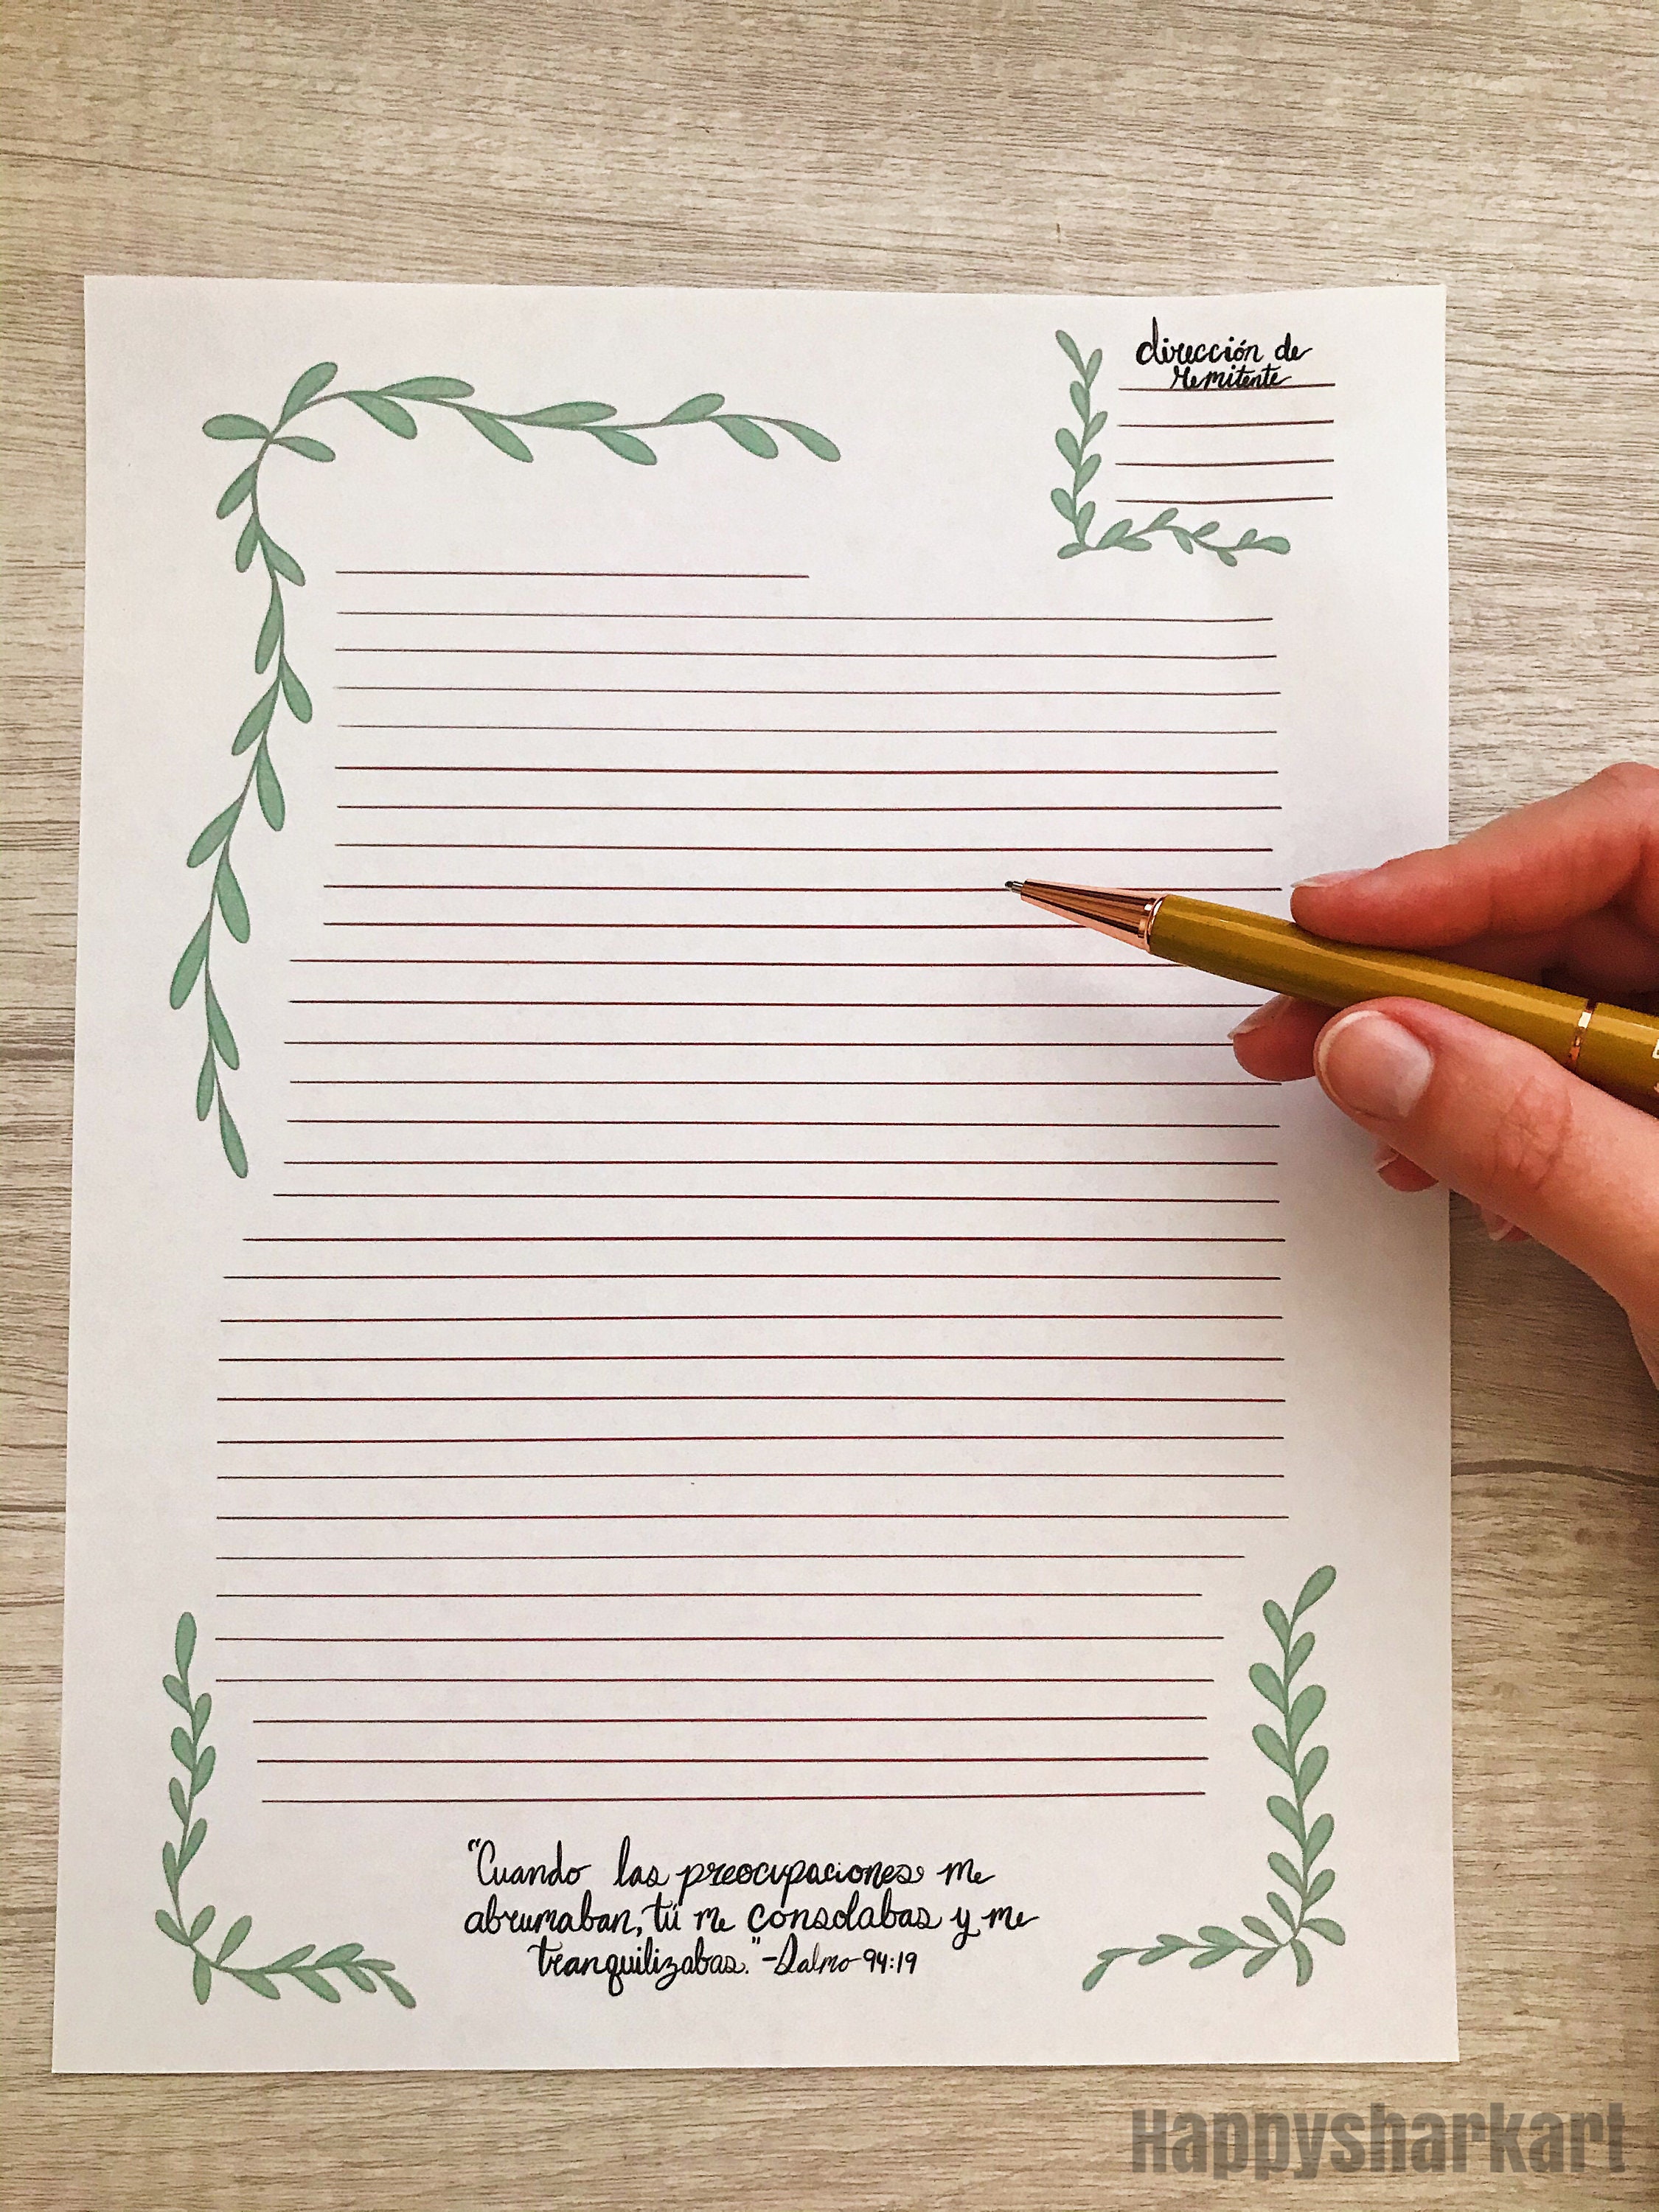 dirección de
remitente
"Cuando las preocupaciones me
abrumaban, tú me consolabas y me
tranquilizabas." -Salmo 94:19
Happysharkart